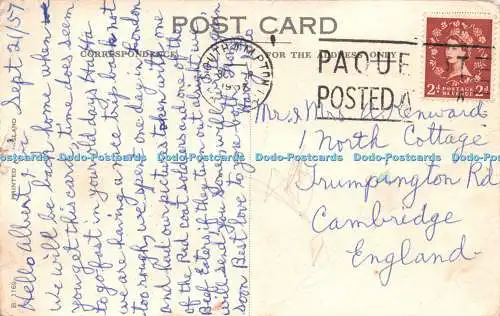 POST CARD
CORRESPONDENCE
FOR THE ADDRESS ONLY
Sept 21/57
Hello Albert
We will be back home when
you get this card. Time does seem
to go fast in your old days Ha Ha
we are having a nice trip back not
too rough, we spent one day in London
and had our pictures taken with one
of the Red coat officers one of the
Beef Eaters if they turn out alright
will send you some will write
soon Best love to you both
SOUTHAMPTON
PAQUE
POSTED A
POSTAGE
REVENUE
2d 2d
Mr. & Mrs. A
1 North Cottage
Trumpington Rd
Cambridge
England
PRINTED
Dodo-Postcards Dodo-Postcards Dodo-Postcards Dodo-Postcards Dodo-Postcards